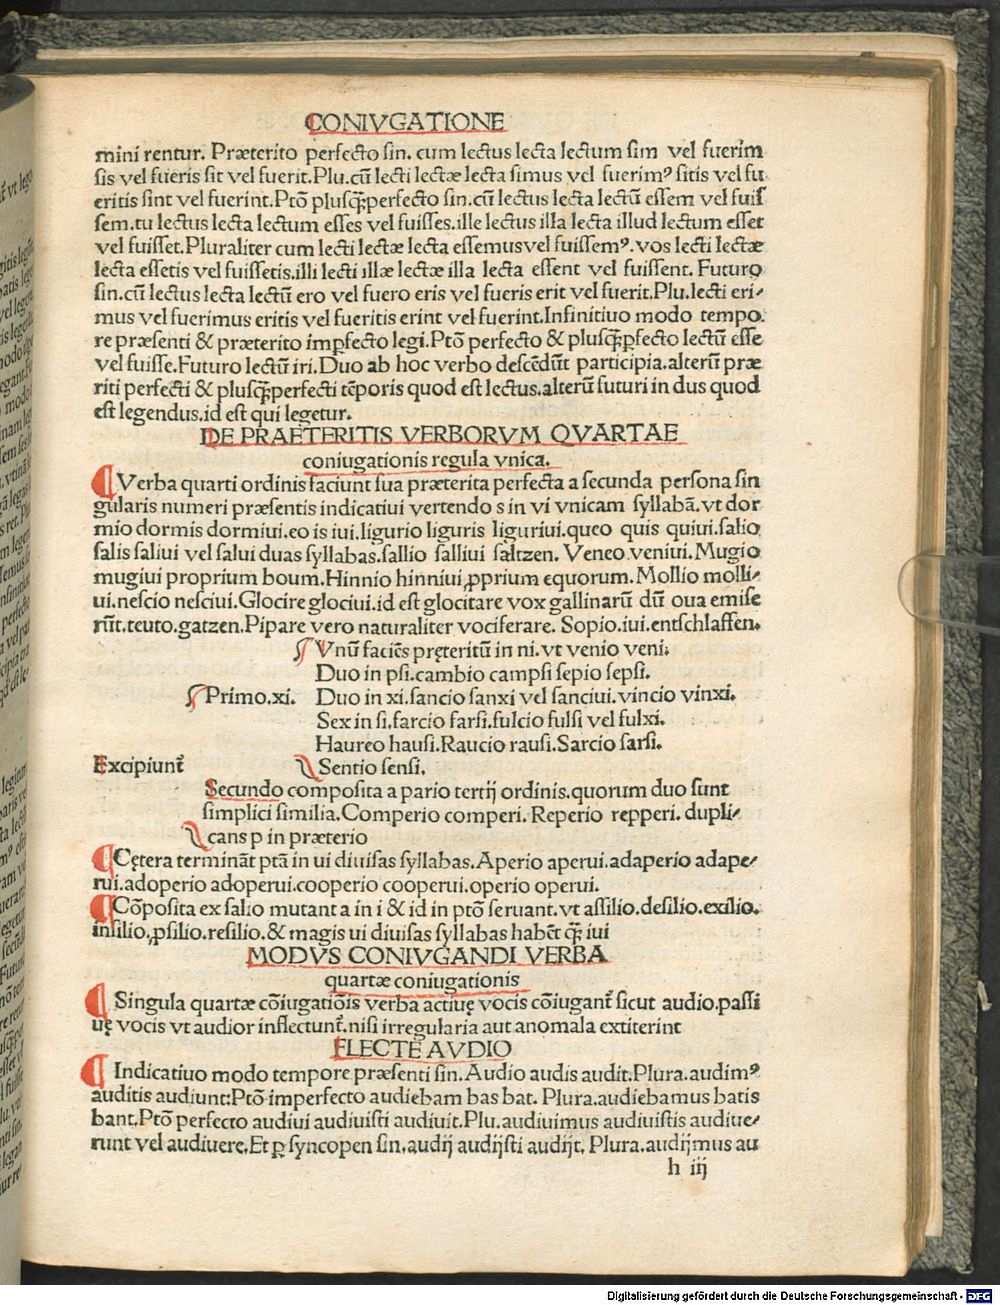 CONIVGATIONE
mini rentur. Præterito perfecto sin. cum lectus lecta lectum sim vel fuerim
sis vel fueris sit vel fuerit.Plu.cũ lecti lectæ lecta simus vel fuerimꝰ sitis vel fu
eritis sint vel fuerint.Ptõ plusq̃perfecto sin.cũ lectus lecta lectũ essem vel fuis
sem.tu lectus lecta lectum esses vel fuisses.ille lectus illa lecta illud lectum esset
vel fuisset.Pluraliter cum lecti lectæ lecta essemus vel fuissemꝰ. vos lecti lectæ
lecta essetis vel fuissetis.illi lecti illæ lectæ illa lecta essent vel fuissent. Futuro
sin.cũ lectus lecta lectũ ero vel fuero eris vel fueris erit vel fuerit.Plu.lecti eri⸗
mus vel fuerimus eritis vel fueritis erint vel fuerint.Infinitiuo modo tempo.
re præsenti & præterito imꝑfecto legi.Ptõ perfecto & plusq̃ꝑfecto lectũ esse
vel fuisse.Futuro lectũ iri.Duo ab hoc verbo descẽdũt participia.alterũ præ
riti perfecti & plusq̃perfecti tẽporis quod est lectus.alterũ futuri in dus quod
est legendus.id est qui legetur.
DE PRAETERITIS VERBORVM QVARTAE
coniugationis regula vnica.
¶ Verba quarti ordinis faciunt sua præterita perfecta a secunda persona sin
gularis numeri præsentis indicatiui vertendo s in vi vnicam syllabã.vt dor
mio dormis dormiui.eo is iui.ligurio liguris liguriui.queo quis quiui.salio
salis saliui vel salui duas syllabas.sallio salliui saltzen. Veneo veniui. Mugio
mugiui proprium boum.Hinnio hinniui ꝓprium equorum. Mollio molli⸗
ui.nescio nesciui.Glocire glociui.id est glocitare vox gallinarũ dũ oua emise
rũt.teuto.gatzen.Pipare vero naturaliter vociferare. Sopio.iui.entschlaffen.
Vnũ facies pręteritũ in ni.vt venio veni.
Duo in psi.cambio campsi sepio sepsi.
Primo.xi. Duo in xi.sancio sanxi vel sanciui.vincio vinxi.
Sex in si.farcio farsi.fulcio fulsi vel fulxi.
Haureo hausi.Raucio rausi.Sarcio sarsi.
Excipiunt᷑ Sentio sensi.
Secundo composita a pario tertij ordinis.quorum duo sunt
simplici similia.Comperio comperi. Reperio repperi. dupli⸗
cans p in præterio
¶ Cętera terminãt ptã in ui diuisas syllabas.Aperio aperui.adaperio adape⸗
rui.adoperio adoperui.cooperio cooperui.operio operui.
¶ Cõposita ex salio mutant a in i & id in ptõ seruant.vt assilio.desilio.exilio.
insilio.ꝓsilio.resilio.& magis ui diuisas syllabas habẽt q̃ iui
MODVS CONIVGANDI VERBA
quartæ coniugationis
¶ Singula quartæ cõiugatiõis verba actiuę vocis cõiugant᷑ sicut audio.passi
uę vocis vt audior inflectunt᷑.nisi irregularia aut anomala extiterint
FLECTE AVDIO
¶ Indicatiuo modo tempore præsenti sin. Audio audis audit.Plura.audimꝰ
auditis audiunt:Ptõ imperfecto audiebam bas bat. Plura.audiebamus batis
bant.Ptõ perfecto audiui audiuisti audiuit.Plu.audiuimus audiuistis audiue⸗
runt vel audiuere.Et ꝑ syncopen sin.audij audijsti audijt. Plura.audijmus au
h iij
Digitalisierung gefördert durch die Deutsche Forschungsgemeinschaft - DFG